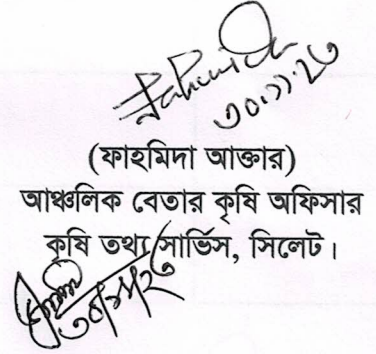 ৩০.১১.২৩
(ফাহমিদা আক্তার)
আঞ্চলিক বেতার কৃষি অফিসার
কৃষি তথ্য সার্ভিস, সিলেট।